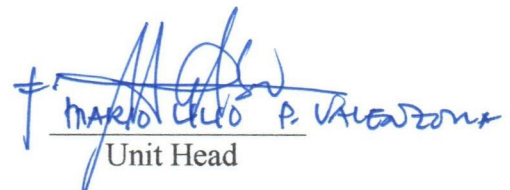 MARIO LILIO P. VALENZONA
Unit Head